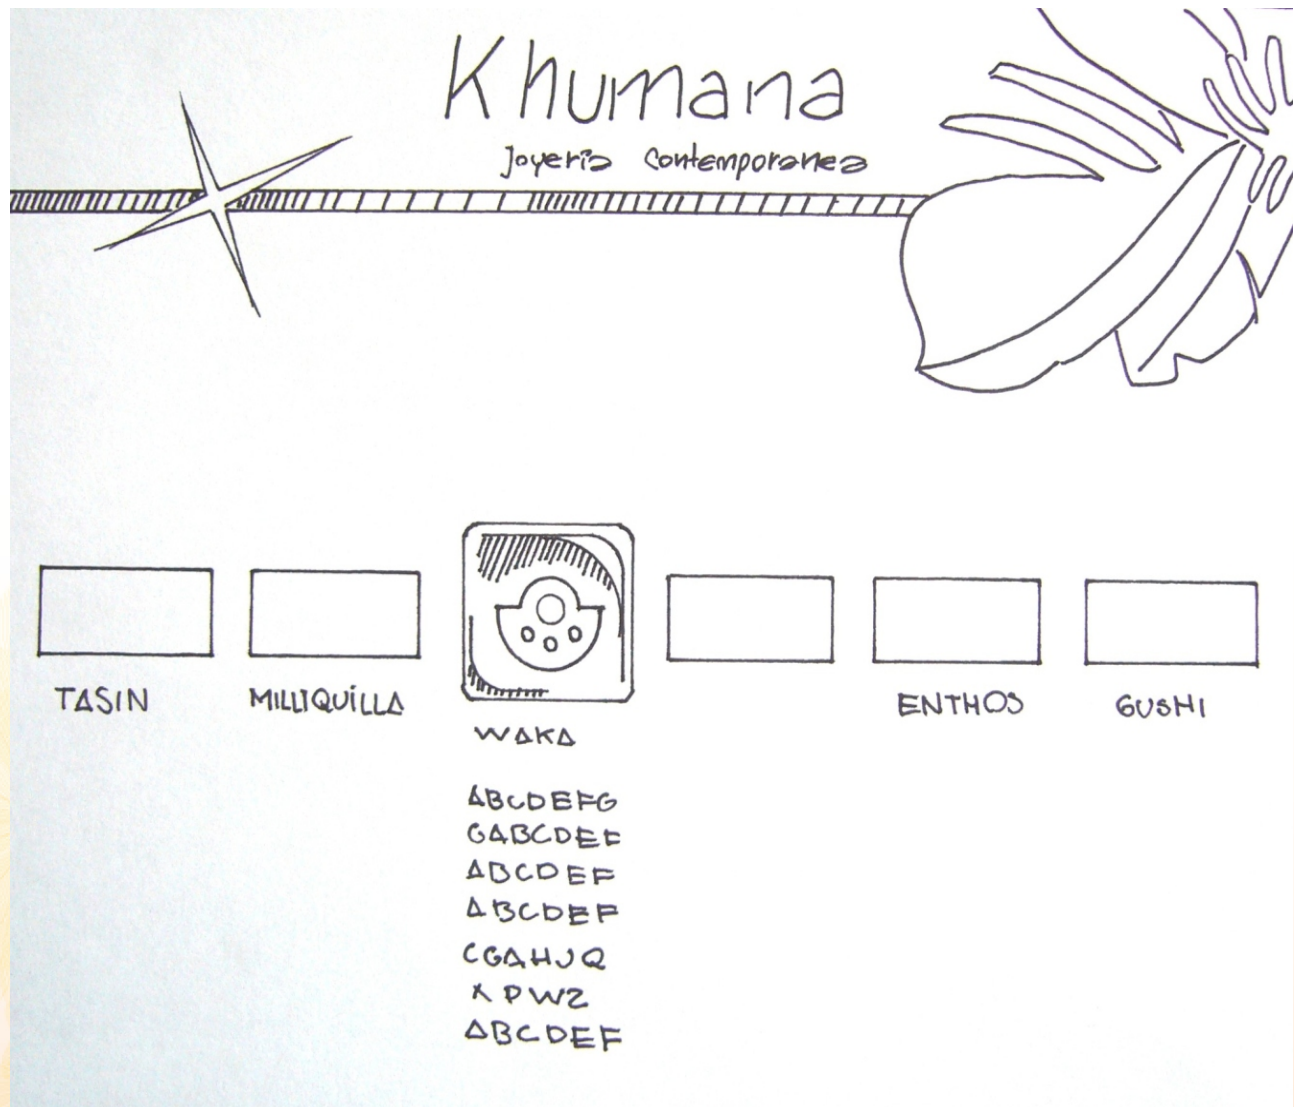 Khumana
Joyeria Contemporanea
TASIN MILLIQUILLA ENTHOS GUSHI
WAKA
ABCDEFG
GABCDEF
ABCDEF
ABCDEF
CGAHJQ
XPWZ
ABCDEF